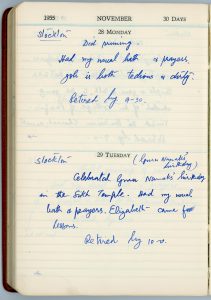 1955 NOVEMBER 30 DAYS
Stockton
28 MONDAY
Did pruning.
Had my usual bath & prayers.
Job is both tedious & dirty.
Retired by 9-30.
29 TUESDAY
Stockton (Guru Nanak's
birthday)
Celebrated Guru Nanak's birthday
in the Sikh Temple. Had my usual
bath & prayers. Elizabeth came for
lessons.
Retired by 10-0.